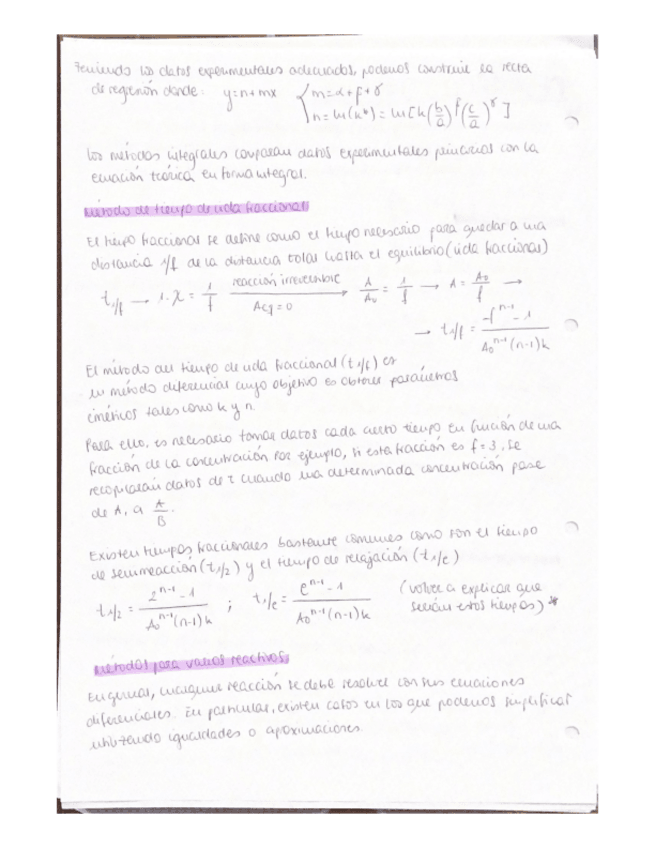 Teniendo los datos experimentales adecuados, podemos construir la recta
de regresión donde: y=n+mx { m=α+β+γ
n=ln(k*)=ln[k(b/a)^β(c/a)^γ]
Los métodos integrales comparan datos experimentales primarios con la
ecuación teórica en forma integral.
Método de tiempo de vida fraccional
El tiempo fraccional se define como el tiempo necesario para quedar a una
distancia 1/f de la distancia total hasta el equilibrio (vida fraccional)
t1/f → 1-x = 1/f reacción irreversible → A/A0 = 1/f → A = A0/f →
Aeq=0
→ t1/f = (f^(n-1) - 1)/(A0^(n-1)(n-1)k)
El método del tiempo de vida fraccional (t1/f) es
un método diferencial cuyo objetivo es obtener parámetros
cinéticos tales como k y n.
Para ello, es necesario tomar datos cada cierto tiempo en función de una
fracción de la concentración. Por ejemplo, si esta fracción es f=3, se
recopilarán datos de t cuando una determinada concentración pase
de A, a A/3.
Existen tiempos fraccionales bastante comunes como son el tiempo
de semirreacción (t1/2) y el tiempo de relajación (t1/e)
t1/2 = (2^(n-1) - 1)/(A0^(n-1)(n-1)k) ; t1/e = (e^(n-1) - 1)/(A0^(n-1)(n-1)k) (volver a explicar que
serían estos tiempos) *
Métodos para varios reactivos
En general, cualquier reacción se debe resolver con sus ecuaciones
diferenciales. En particular, existen casos en los que podemos simplificar
utilizando igualdades o aproximaciones.